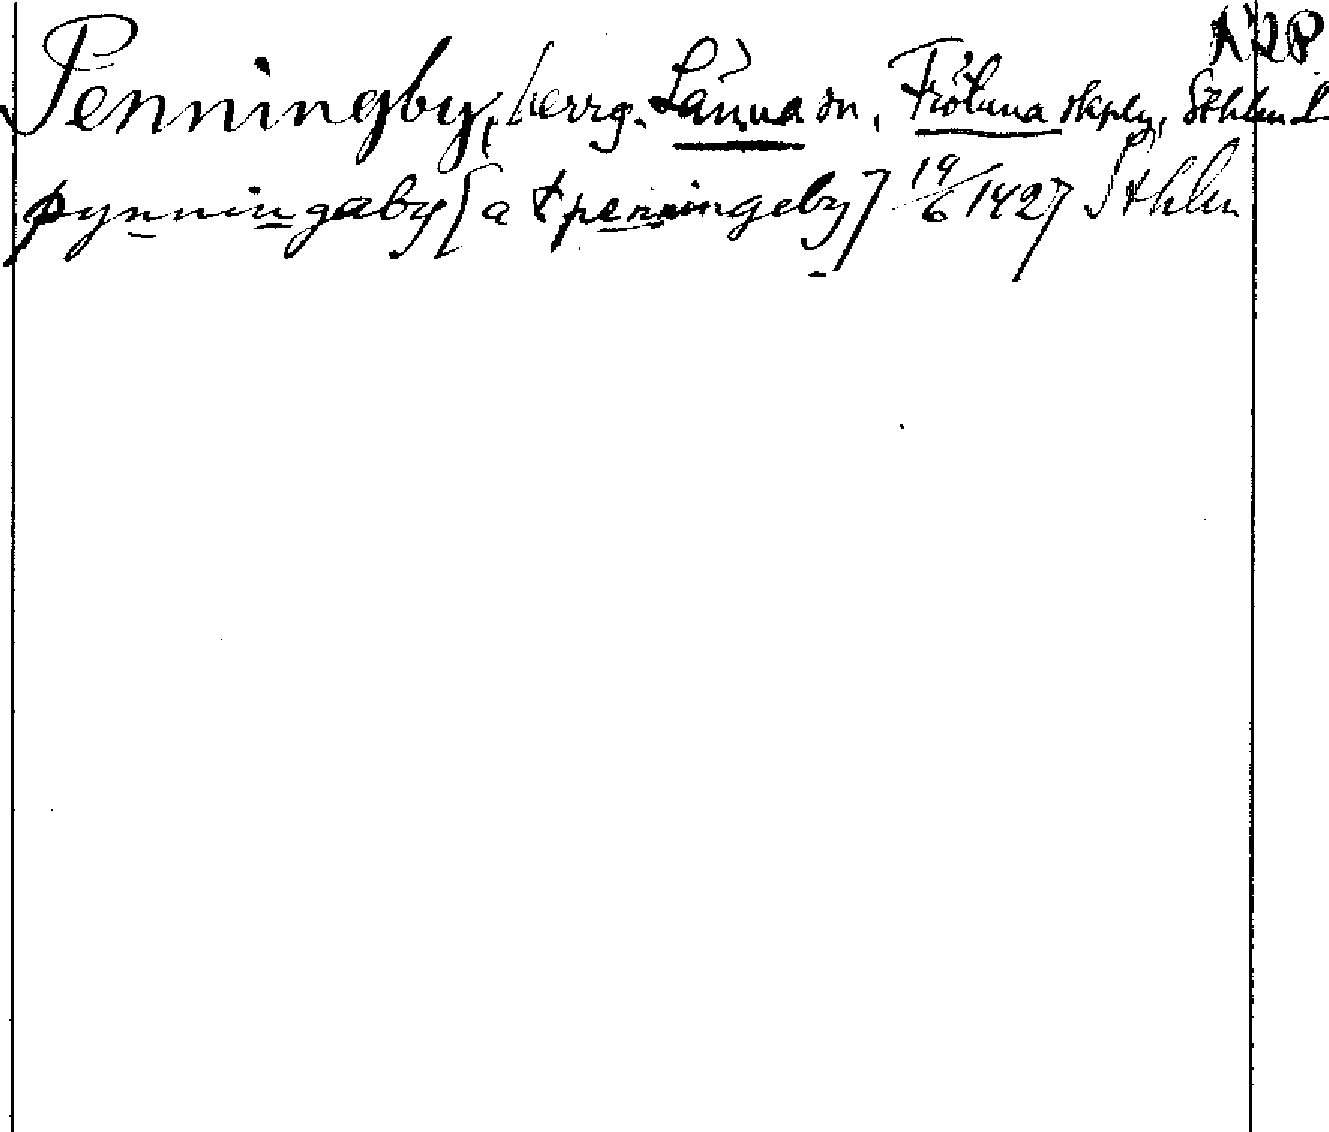 N2P
Penningby, herrg. Länna sn, Frötuna skplg, Sthlms l
pynningaby [a t peningeby] 19/6 1427 Sthlm